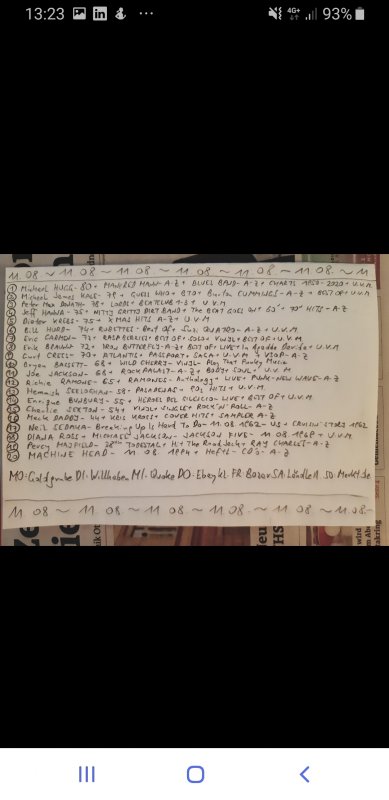 13:23 4G+ 93%
11.08 ~ 11.08 ~ 11.08 ~ 11.08 ~ 11.08 ~ 11.08. ~ 11
① Michael HUGG - 80 + MANFRED MANN - A-Z + BLUES BAND - A-Z + CHARTS 1950-2020 + U.V.M.
② Michael James KALE - 78 + GUESS WHO + BTO + Burton CUMMINGS - A-Z + BEST OF + U.V.M
③ Peter Max + LORDS + BEATCLUB 1-3 + U.V.M
④ Jeff HANNA - 75 + NITTY GRITTO DIRT BAND + THE BEAT GOES ON + 60 + 70 HITS - A-Z
⑤ Dieter KREBS - 75 + XMAS HITS A-Z + U.V.M
⑥ Bill HURD - 74 + RUBETTES - Best Of + Suzi QUATRO - A-Z + U.V.M.
⑦ Eric CARMEN - 73 + RASPBERRIES + BEST OF + SOLO + VINYL + BEST OF + U.V.M
⑧ Erik BRAUNN - 72 + IRON BUTTERFLY - A-Z + BEST OF + LIVE + In Da + U.V.M.
⑨ Curt CRESS - 70 + ATLANTIS + PASSPORT + SAGA + U.V.M + A-Z
⑩ Bryan BASSETT - 68 + WILD CHERRY - VINYL - Play That Funky Music
⑪ Joe JACKSON - 68 + ROCKPALAST - A-Z + BODY + SOUL + U.V.M
⑫ Richie RAMONE - 65 + RAMONES - Anthology + LIVE + PUNK - NEW WAVE - A-Z
⑬ - 58 + - 80s HITS + U.V.M
⑭ Enrique BUNBURY - 55 + HEROES DEL SILENCIO - LIVE + BEST OF + U.V.M
⑮ Charlie SEXTON - 54 + VINYL + SINGLES + ROCK'N'ROLL - A-Z
⑯ Mack DADDY - 44 + KRIS KROSS + COVER HITS + SAMPLER A-Z
⑰ Neil SEDAKA - Breaking Up Is Hard To Do - 11.08.1962 - US + 1962
⑱ DIANA ROSS + MICHAEL JACKSON - JACKSON FIVE - 11.08.1969 + U.V.M
⑲ Percy MAYFIELD - TODESTAG + Hit The Road Jack + RAY CHARLES - A-Z
⑳ MACHINE HEAD - 11.08.1994 + - CDs - A-Z
MO: Goldgrube DI: Willhaben MI: Quoka DO: Ebay kl FR: Bazar SA: Ländle A SO: Markt.de
11.08 ~ 11.08 ~ 11.08. ~ 11.08 ~ 11.08 ~ 11.08.